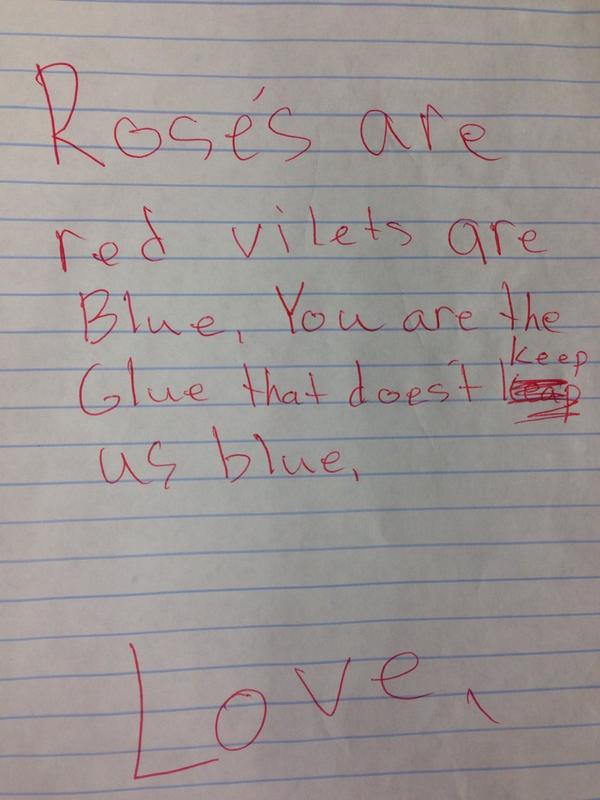 Rosés are
red vilets are
Blue, You are the
Glue that does't keep
us blue,
Love,